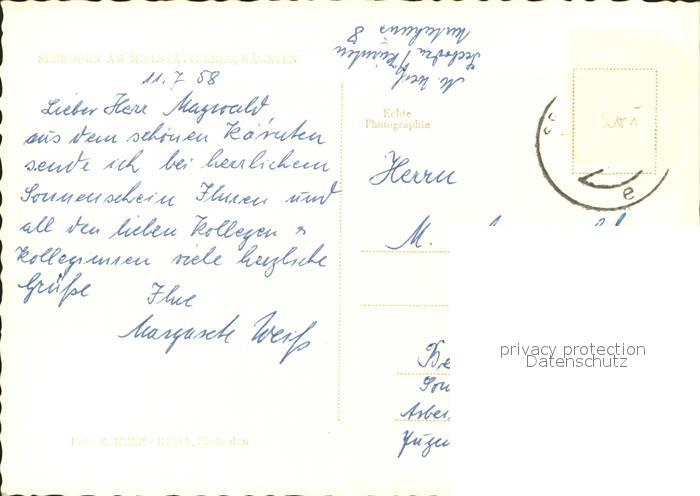 SEEBODEN AM MILLSTÄTTERSEE, KÄRNTEN
11.7.58
Lieber Herr Maywald
aus dem schönen Kärnten
sende ich bei herrlichem
Sonnenschein Ihnen und
all den lieben Kollegen &
Kolleginnen viele herzliche
Grüße
Ihre
Margarete Weiß
Foto Z. KUNZ - KUDA, Seeboden
M. Weiß
Seeboden / Kärnten
Echte
Photographie
Herrn
M.
privacy protection
Datenschutz